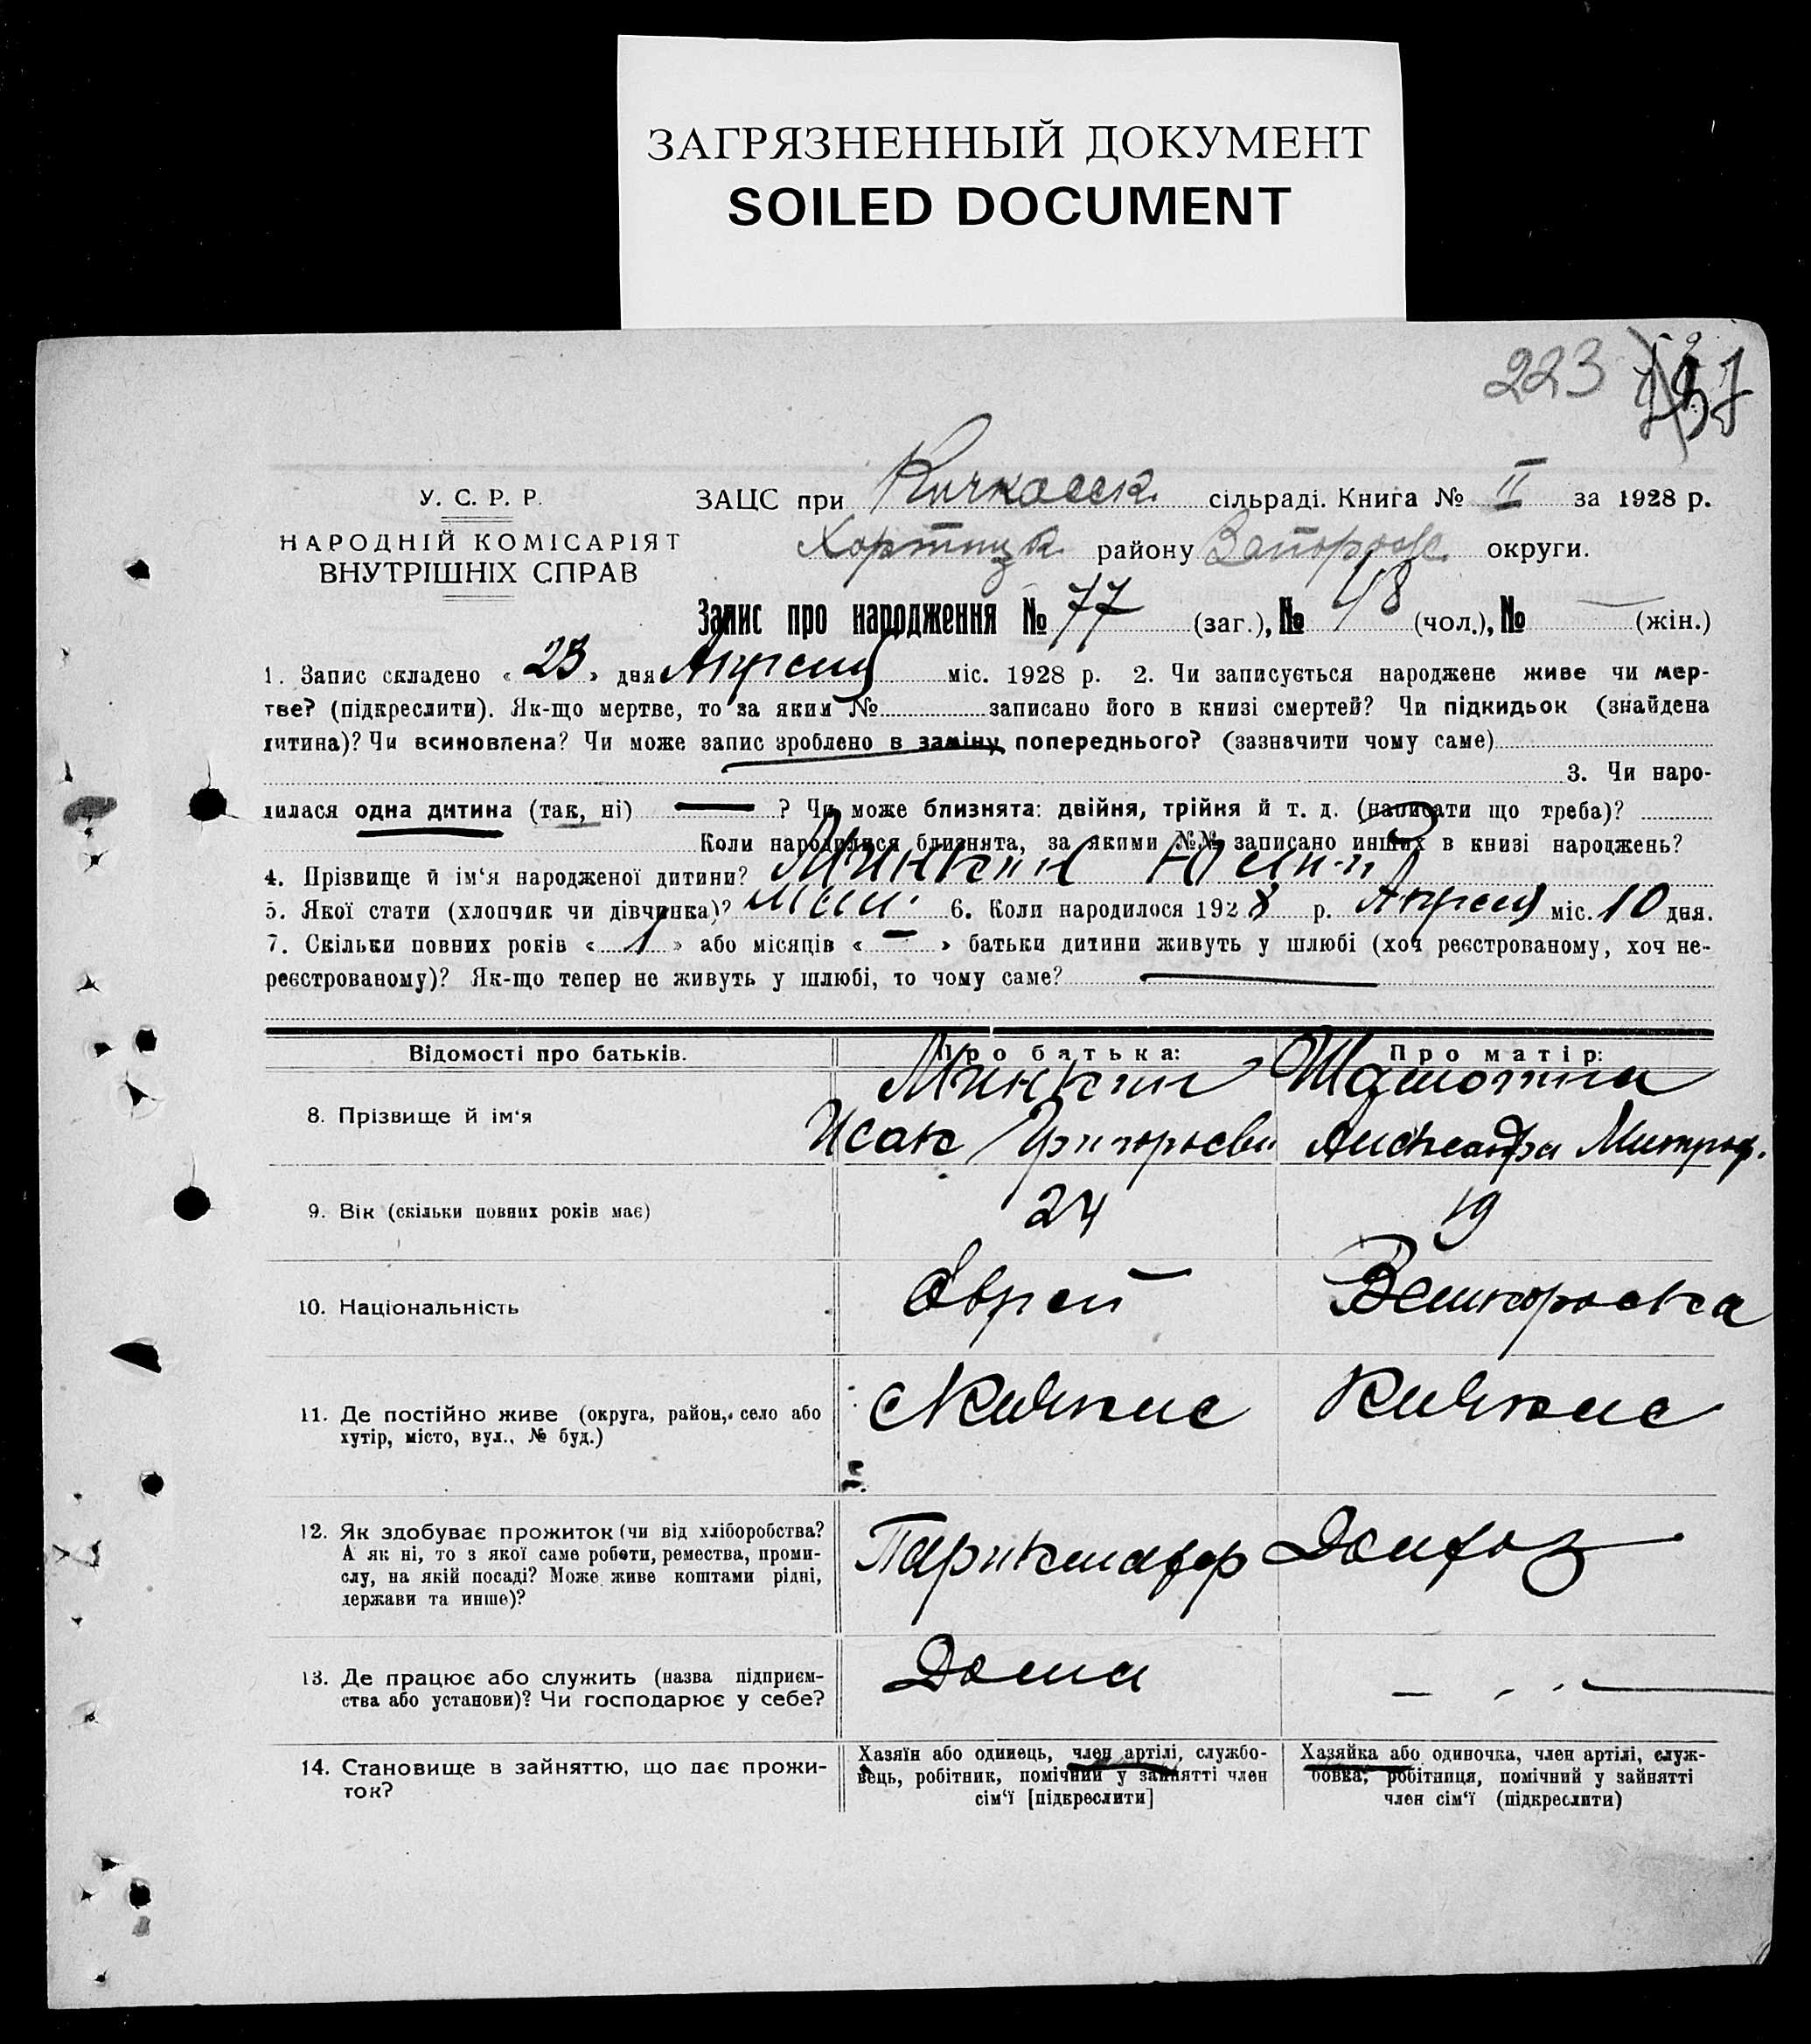 ЗАГРЯЗНЕННЫЙ ДОКУМЕНТ
SOILED DOCUMENT
223
У. С. Р. Р.
НАРОДНІЙ КОМІСАРІЯТ
ВНУТРІШНІХ СПРАВ
ЗАЦС при Кичкасск. сільраді. Книга № II за 1928 р.
Хортицк. району Запорож. округи.
Запис про народження № 77 (заг.), № 48 (чол.), № — (жін.)
1. Запис складено « 23 » дня Апреля міс. 1928 р. 2. Чи записується народжене живе чи мер-
тве? (підкреслити). Як-що мертве, то за яким № записано його в книзі смертей? Чи підкидьок (знайдена
дитина)? Чи всиновлена? Чи може запис зроблено в заміну попереднього? (зазначити чому саме)
3. Чи наро-
дилася одна дитина (так, ні) — ? Чи може близнята: двійня, трійня й т. д. (написати що треба)?
Коли народилися близнята, за якими №№ записано инших в книзі народжень?
4. Прізвище й ім‘я народженої дитини? Минкин Юлий
5. Якої стати (хлопчик чи дівчинка)? мал. 6. Коли народилося 1928 р. Апреля міс. 10 дня.
7. Скільки повних років « 1 » або місяців « — » батьки дитини живуть у шлюбі (хоч реєстрованому, хоч не-
реєстрованому)? Як-що тепер не живуть у шлюбі, то чому саме? —
Відомості про батьків. Про батька: Про матір:
8. Прізвище й ім‘я
Минкин
Исак Григорьеви
Александра Митроф.
9. Вік (скільки повних років має) 24 19
10. Національність Еврей Великороска
11. Де постійно живе (округа, район, село або
хутір, місто, вул., № буд.)
Кичкас Кичкас
12. Як здобуває прожиток (чи від хліборобства?
А як ні, то з якої саме роботи, ремества, проми-
слу, на якій посаді? Може живе коштами рідні,
держави та инше)?
Парикмахер Домхоз
13. Де працює або служить (назва підприєм-
ства або установи)? Чи господарює у себе?
Дома —
14. Становище в зайняттю, що дає прожи-
ток?
Хазяїн або одинець, член артілі, службо-
вець, робітник, помічний у зайнятті член
сім‘ї [підкреслити]
Хазяйка або одиночка, член артілі, служ-
бовка, робітниця, помічний у зайнятті
член сім‘ї (підкреслити)